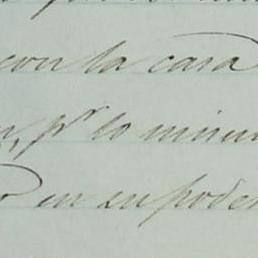 con la casa
, pr lo minu
en su poder